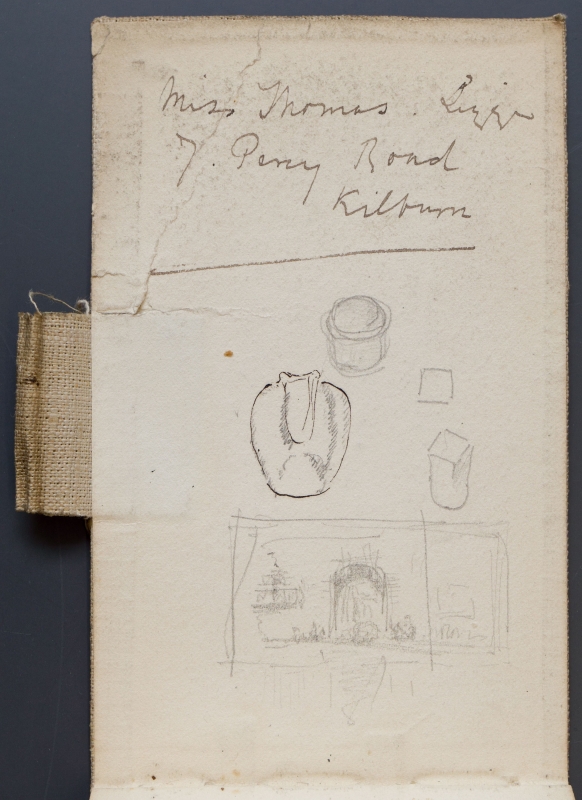 Miss Thomas.
7. Percy Road
Kilburn